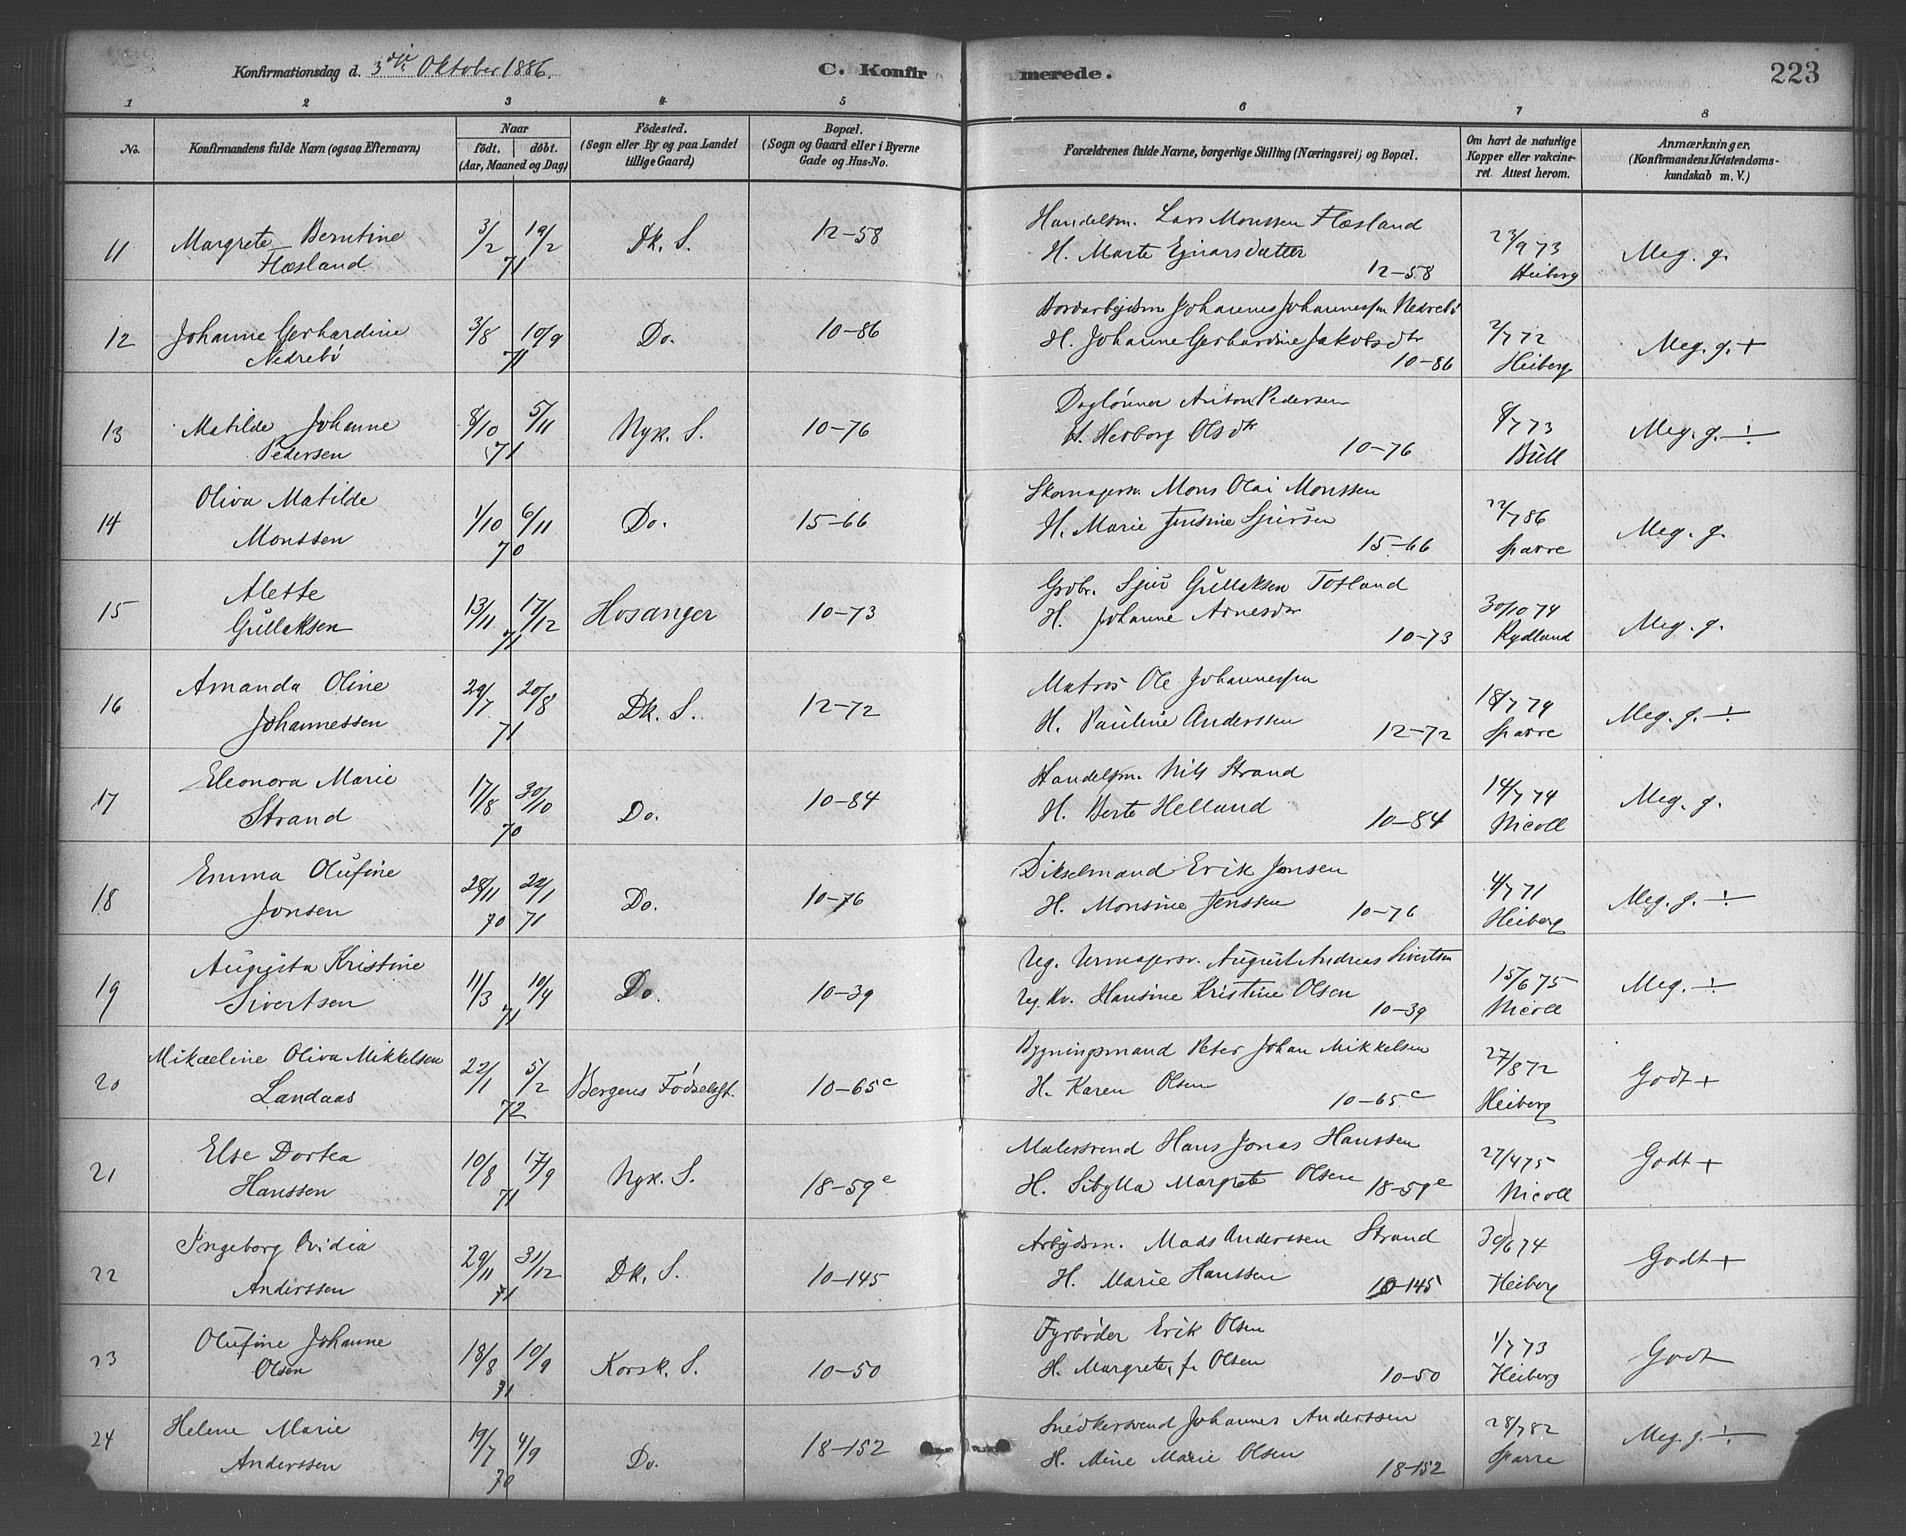 Konfirmationsdag d. 3die Oktober 1886.
C. Konfirmerede.
223
1 2 3 4 5 6 7 8
No.
Konfirmandens fulde Navn (ogsaa Efternavn)
Naar
födt. döbt.
(Aar, Maaned og Dag)
Födested.
(Sogn eller By og paa Landet
tillige Gaard)
Bopæl.
(Sogn og Gaard eller i Byerne
Gade og Hus-No.
Forældrenes fulde Navne, borgerlige Stilling (Næringsvei) og Bopæl.
Om havt de naturlige
Kopper eller vakcine-
ret. Attest herom.
Anmærkninger.
(Konfirmandens Kristendoms-
kundskab m. V.)
11 Margrete Berntine
Flæsland
3/2 19/2
71
Dk. S.
12-58
Handelsm. Lars Monssen Flæsland
H. Marte Ejnarsdatter
12-58
23/9 73
Heiberg
Meg. g.
12 Johanne Gerhardine
Nedrebö
3/8 10/9
71
Do.
10-86
Bordarbejdsm Johannes Johannessen Nedrebö
H. Johanne Gerhardine Jakobsdtr
10-86
2/7 72
Heiberg
Meg. g. +
13 Matilde Johanne
Pedersen
8/10 5/11
71
Nyk. S.
10-76
Daglönner Anton Pedersen
H. Herborg Olsdtr
10-76
8/7 73
Büll
Meg. g. ÷
14 Oliva Matilde
Monssen
1/10 6/11
70
Do.
15-66
Skomagersv. Mons Olai Monssen
H. Marie Jensine Sjursen
15-66
22/7 86
Sparre
Meg. g.
15 Alette
Gullaksen
13/11 17/12
71
Hosanger
10-73
Grdbr. Sjur Gullaksen Tofland
H. Johanne Arnesdtr
10-73
30/10 74
Rydland
Meg. g.
16 Amanda Oline
Johannessen
29/7 20/8
71
Dk. S.
12-72
Matros Ole Johannessen
H. Pauline Anderssen
12-72
18/7 74
Sparre
Meg. g. ÷
17 Eleonora Marie
Strand
17/8 30/10
70
Do.
10-84
Handelsm. Nils Strand
H. Berte Helland
10-84
14/7 74
Nicoll
Meg. g.
18 Emma Olufine
Jonsen
28/11 22/1
70 71
Do.
10-76
Dikselmand Erik Jonsen
H. Monsine Jenssen
10-76
4/7 71
Heiberg
Meg. g. ÷
19 Augusta Kristine
Sivertsen
11/3 10/4
71
Do.
10-39
Ug. Urmagersv. August Andreas Sivertsen
Ug. Kv. Hansine Kristine Olsen
10-39
15/6 75
Nicoll
Meg. ÷
20 Mikaeline Oliva Mikkelsen
Landaas
22/1 5/2
72
Bergens Födselsst.
10-65c
Bygningsmand Peter Johan Mikkelsen
H. Karen Olsen
10-65c
27/8 72
Heiberg
Godt +
21 Else Dortea
Hanssen
10/8 17/9
71
Nyk. S.
18-59e
Malersvend Hans Jonas Hanssen
H. Sibylla Margrete Olsen 18-59e
27/4 75
Nicoll
Godt +
22 Ingeborg Ovidia
Anderssen
29/11 31/12
71
Dk. S.
10-145
Arbejdsm. Mads Anderssen Strand
H. Marie Hanssen
10-145
30/6 74
Heiberg
Godt +
23 Olufine Johanne
Olsen
18/8 10/9
71
Korsk. S.
10-50
Fyrböder Erik Olsen
H. Margrete, f. Olsen
10-50
1/7 73
Heiberg
Godt
24 Helene Marie
Anderssen
19/7 4/9
70
Do.
18-152
Snedkersvend Johannes Anderssen
H. Mine Marie Olsen
18-152
28/7 82
Sparre
Meg. g. ÷